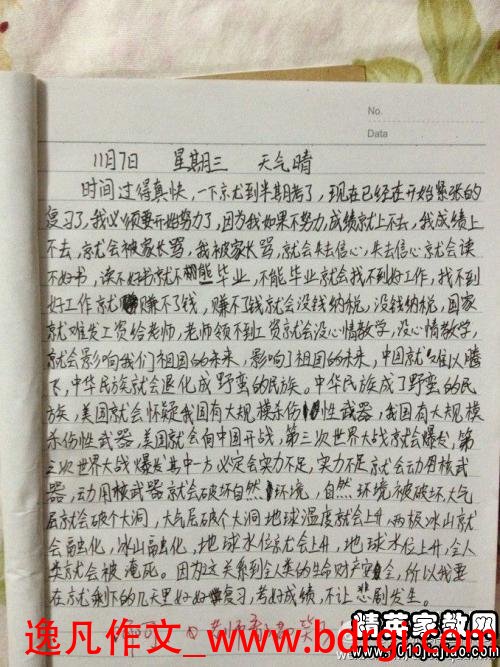 No.
Data
11月7日 星期三 天气晴
时间过得真快,一下就到半期考了,现在已经在开始紧张的
复习了,我必须要开始努力了,因为我如果不努力,成绩就上不去,我成绩上
不去,就会被家长骂,我被家长骂,就会失去信心,失去信心就会读
不好书,读不好书就不能毕业,不能毕业就会找不到好工作,找不到
好工作就赚不了钱,赚不了钱就会没钱纳税,没钱纳税,国家
就难发工资给老师,老师领不到工资就会没心情教学,没心情教学,
就会影响我们祖国的未来,影响了祖国的未来,中国就难以腾
飞,中华民族就会退化成野蛮的民族。中华民族成了野蛮的民
族,美国就会怀疑我国有大规模杀伤性武器,我国有大规模
杀伤性武器,美国就会向中国开战,第三次世界大战就会爆发,第
三次世界大战爆发其中一方必定会实力不足,实力不足就会动用核武
器,动用核武器就会破坏自然环境,自然环境被破坏,大气
层就会破个大洞,大气层破个大洞地球温度就会上升,两极冰山就
会融化,冰山融化,地球水位就会上升,地球水位上升,全人
类就会被淹死。因为这关系到全人类的生命财产安全,所以我要
在就剩下的几天里好好复习,考好成绩,不让悲剧发生。
逸凡作文_www.bdrgi.com
精英家教网
www.1010jiajiao.com